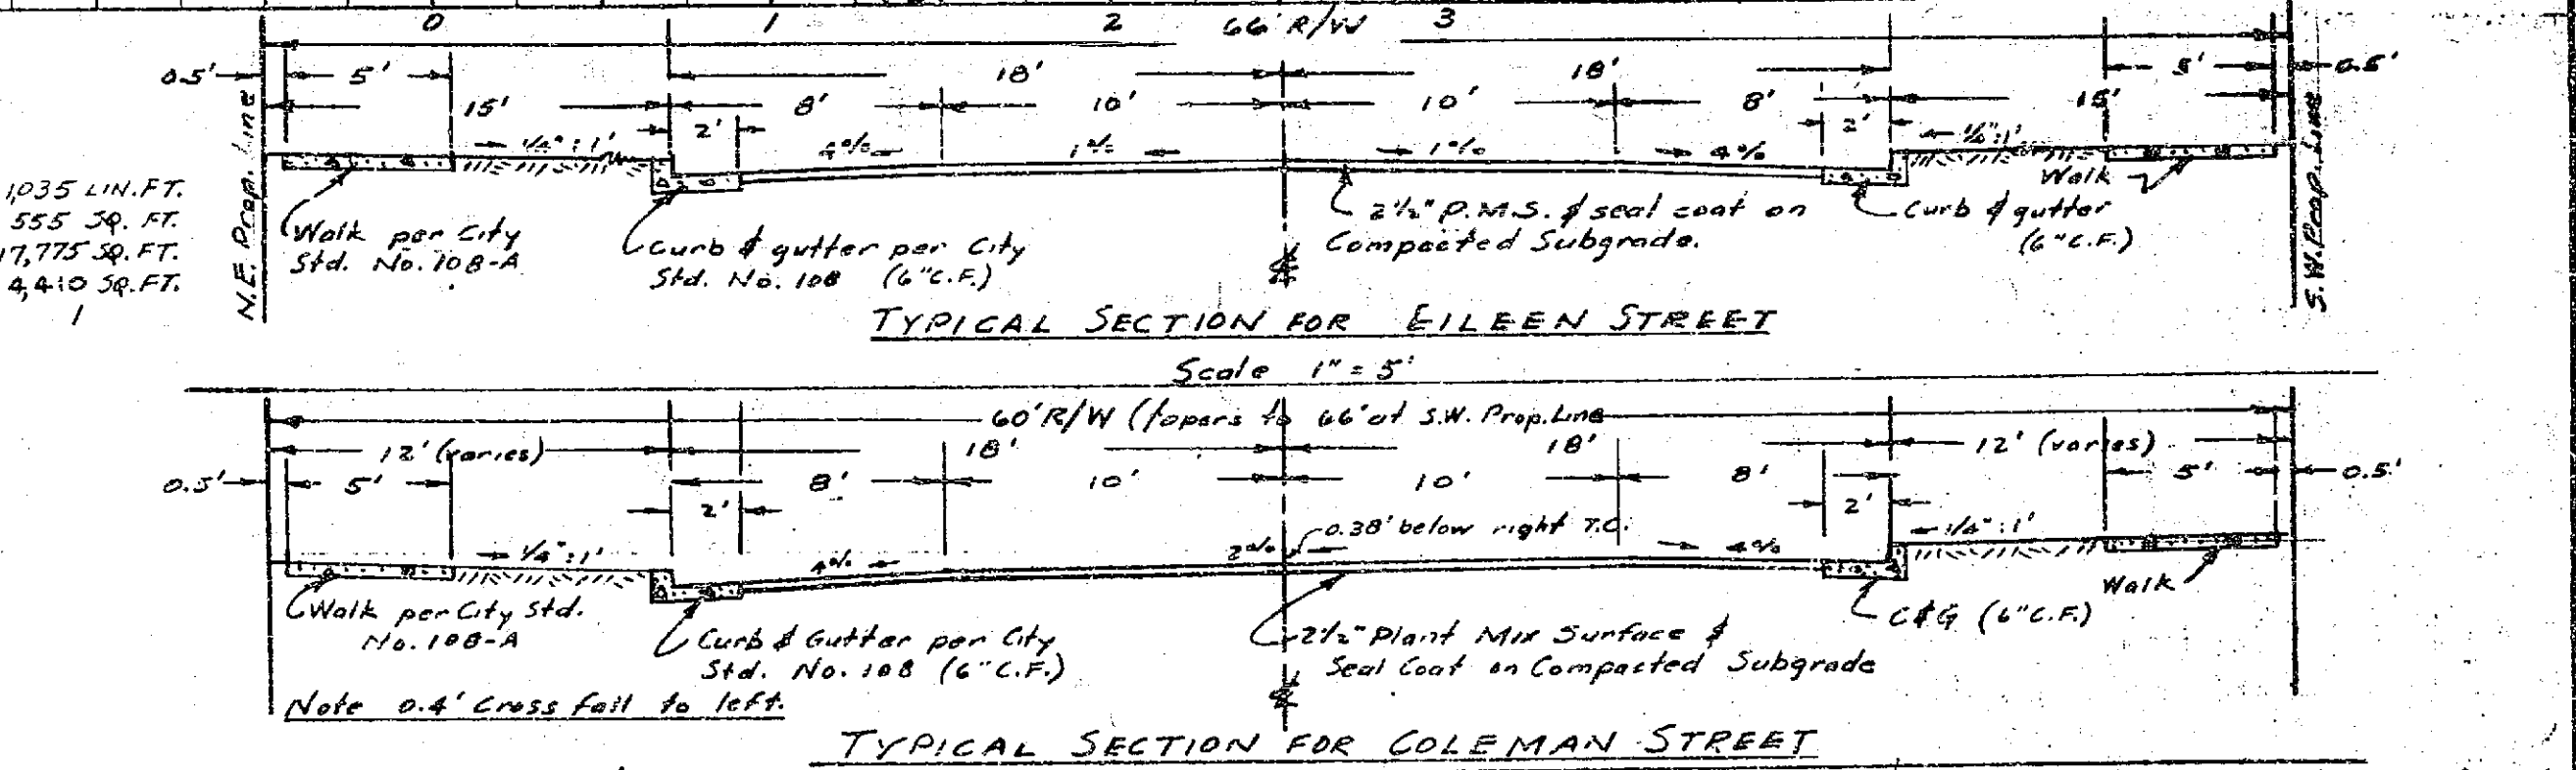 0 1 2 66' R/W 3
0.5' 5' 18' 18' 5' 0.5'
15' 8' 10' 10' 8' 15'
2' 2'
1/4":1' 4% 1% 1% 4% 1/4":1'
N.E. Prop. Line
S.W. Prop. Line
1,035 LIN. FT.
555 SQ. FT.
17,775 SQ. FT.
4,410 SQ. FT.
1
Walk per City
Std. No. 108-A
Curb & gutter per City
Std. No. 108 (6" C.F.)
2 1/2" P.M.S. & seal coat on
Compacted Subgrade.
Curb & gutter
(6" C.F.)
Walk
TYPICAL SECTION FOR EILEEN STREET
Scale 1" = 5'
60' R/W (tapers to 66' at S.W. Prop. Line
12' (varies) 18' 18' 12' (varies)
0.5' 5' 8' 10' 10' 8' 5' 0.5'
2' 2'
0.38' below right T.C.
1/4":1' 4% 2% 4% 1/4":1'
Walk per City Std.
No. 108-A
Curb & Gutter per City
Std. No. 108 (6" C.F.)
2 1/2" Plant Mix Surface &
Seal Coat on Compacted Subgrade
C & G (6" C.F.)
Walk
Note 0.4' Cross fall to left.
TYPICAL SECTION FOR COLEMAN STREET